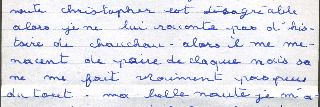 route christopher est désagréable
alors je ne lui raconte pas d'his-
toire de chouchou. alors il me me-
nacent de paire de claque mais sa
ne me fait vraiment pas peur
du tout. ma belle nante je m'a-